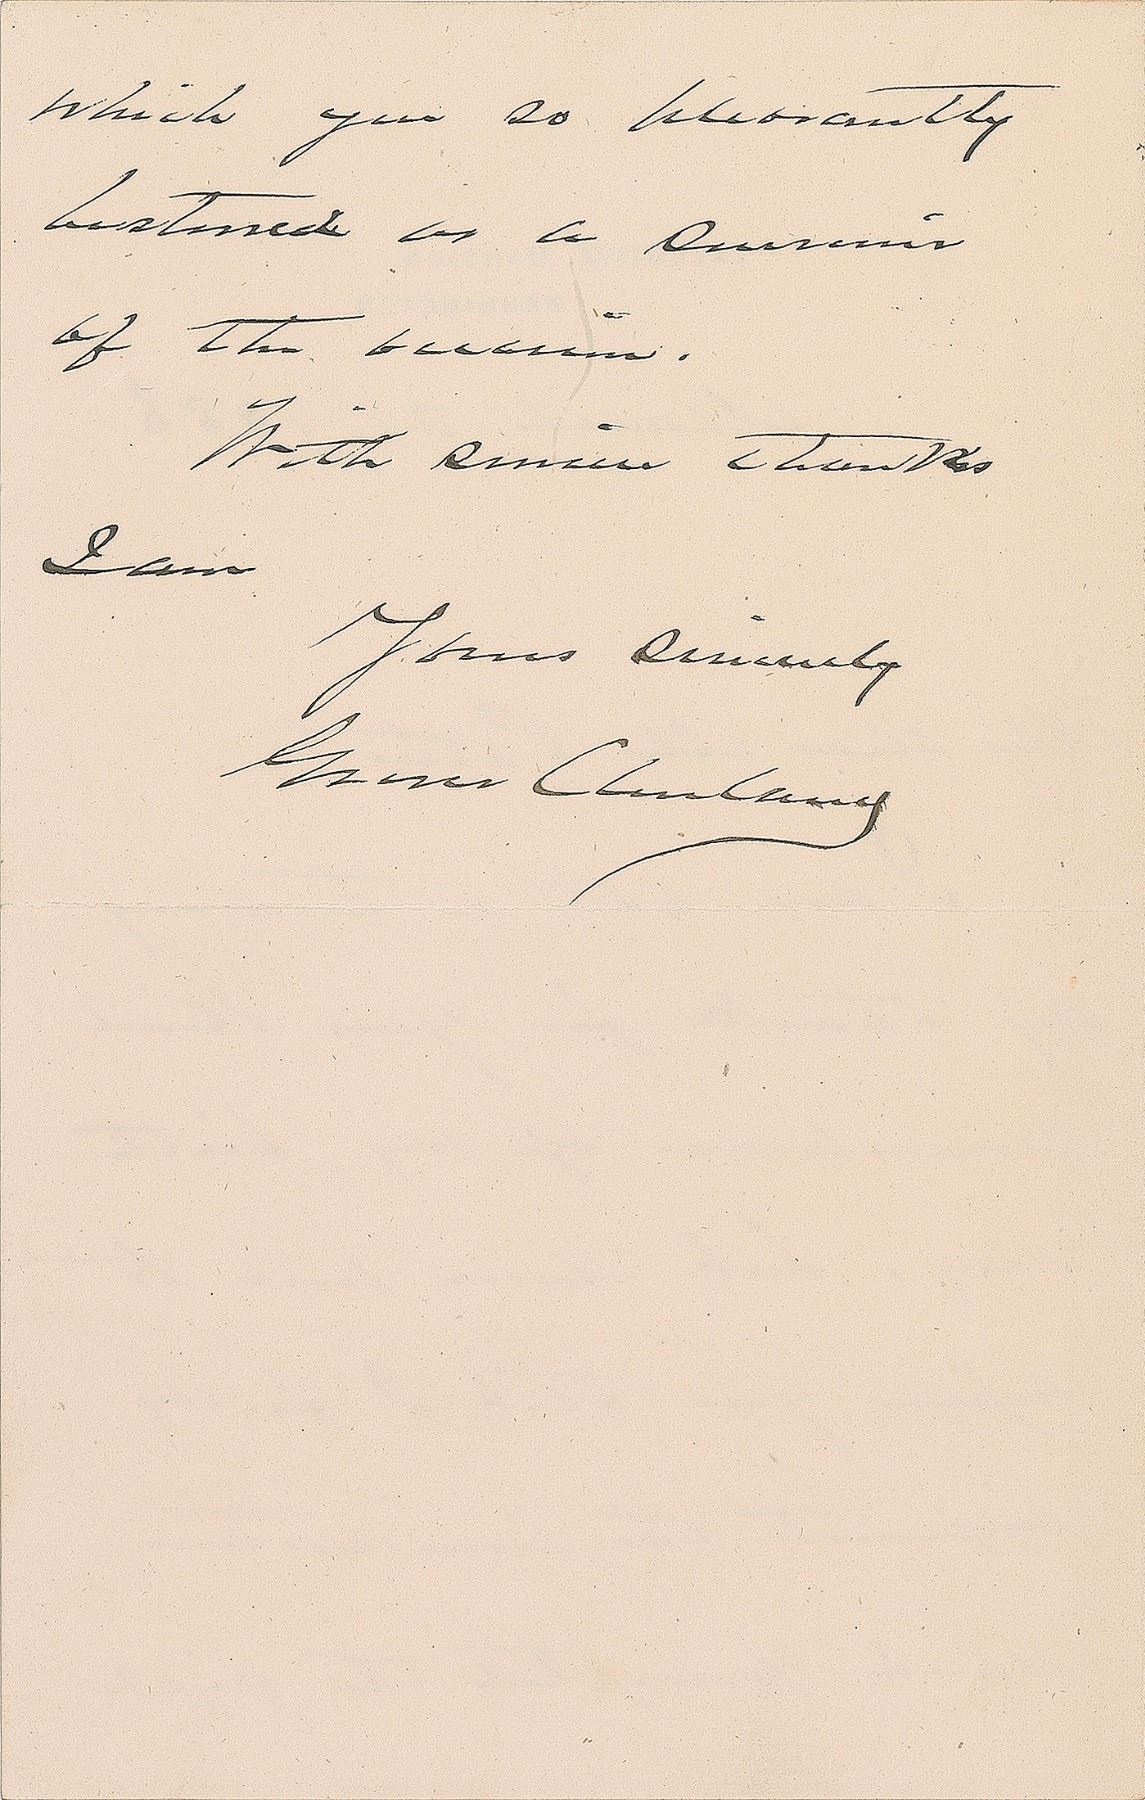 which you so pleasantly
bestowed as a souvenir
of the occasion.
With sincere thanks
I am
Yours sincerely
Grover Cleveland